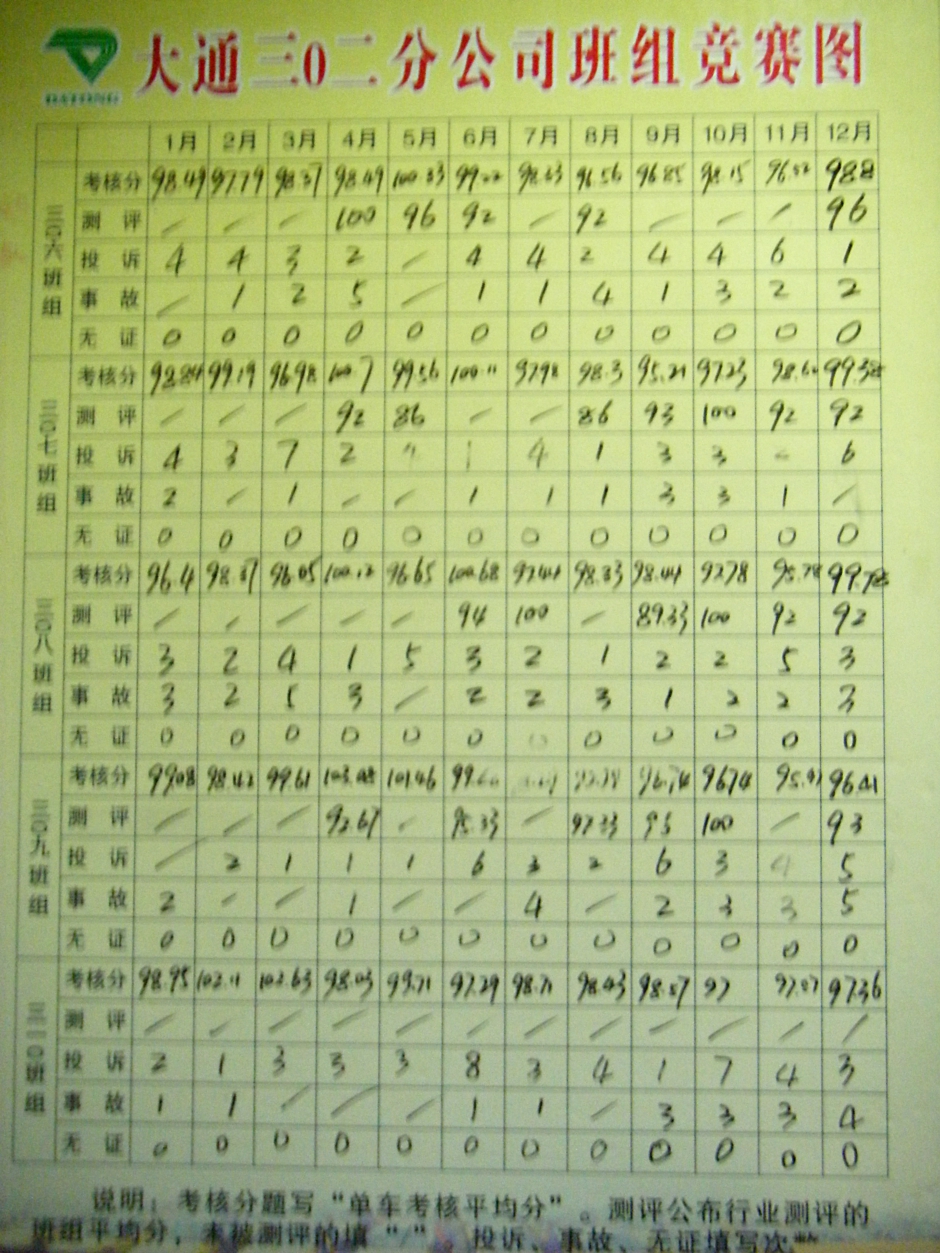 大通三0二分公司班组竞赛图
DATONG
1月 2月 3月 4月 5月 6月 7月 8月 9月 10月 11月 12月
三0六班组
考核分 98.49 97.79 98.37 98.49 100.33 99.02 98.33 96.56 96.85 98.15 96.52 98.8
测评 / / / 100 96 92 / 92 / / / 96
投诉 4 4 3 2 / 4 4 2 4 4 6 1
事故 / 1 2 5 / 1 1 4 1 3 2 2
无证 0 0 0 0 0 0 0 0 0 0 0 0
三0七班组
考核分 98.84 99.19 96.98 100.7 99.56 100.11 97.98 98.3 95.21 97.23 98.60 99.38
测评 / / / 92 86 / / 86 93 100 92 92
投诉 4 3 7 2 1 4 1 3 3 6
事故 2 / 1 / / 1 1 1 3 3 1 /
无证 0 0 0 0 0 0 0 0 0 0 0 0
三0八班组
考核分 96.4 98.37 96.05 100.12 96.65 100.68 97.44 98.33 98.44 97.78 95.78 99.78
测评 / / / / / 94 100 / 89.33 100 92 92
投诉 3 2 4 1 5 3 2 1 2 2 5 3
事故 3 2 5 3 / 2 2 3 1 2 2 3
无证 0 0 0 0 0 0 0 0 0 0 0 0
三0九班组
考核分 99.08 98.42 99.61 103.08 101.46 96.74 96.74 96.41
测评 / / / 92.67 / 95.33 / 97.33 95 100 / 93
投诉 / 2 1 1 1 6 3 2 6 3 4 5
事故 2 / / 1 / / 4 / 2 3 3 5
无证 0 0 0 0 0 0 0 0 0 0 0 0
三一0班组
考核分 98.95 102.11 102.63 98.03 99.71 97.29 98.71 98.43 98.57 97 97.57 97.36
测评 / / / / / / / / / / / /
投诉 2 1 3 3 3 8 3 4 1 7 4 3
事故 1 1 / / / 1 1 / 3 3 3 4
无证 0 0 0 0 0 0 0 0 0 0 0 0
说明：考核分题写“单车考核平均分”。测评公布行业测评的
班组平均分，未被测评的填“/”。投诉、事故、无证填写次